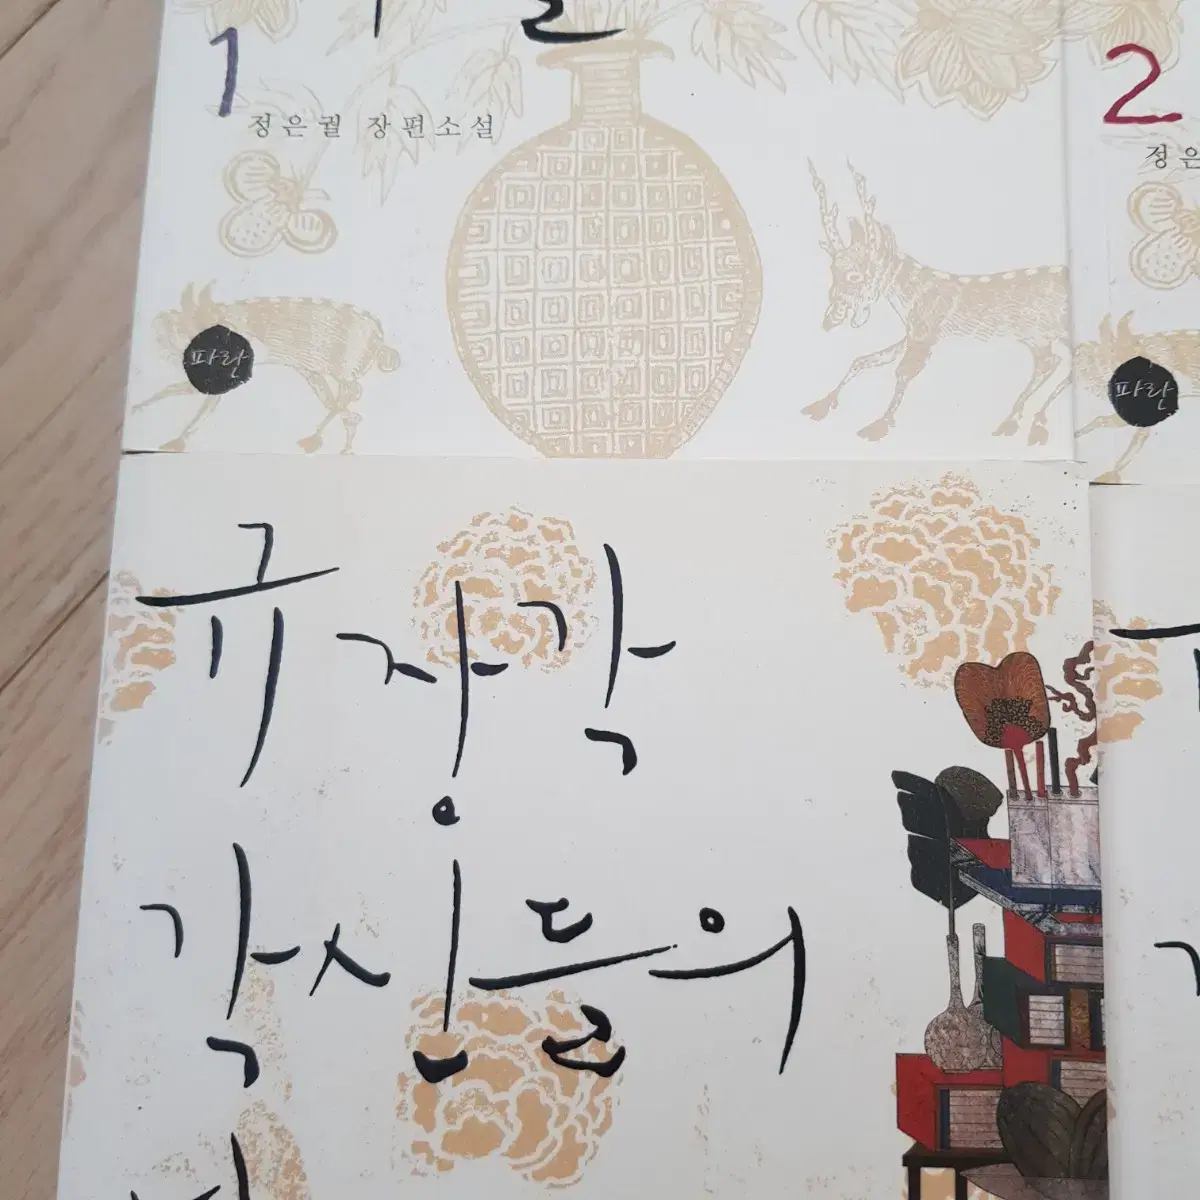 1
정은궐 장편소설
파란
2
정은
파란
규장각
각신들의